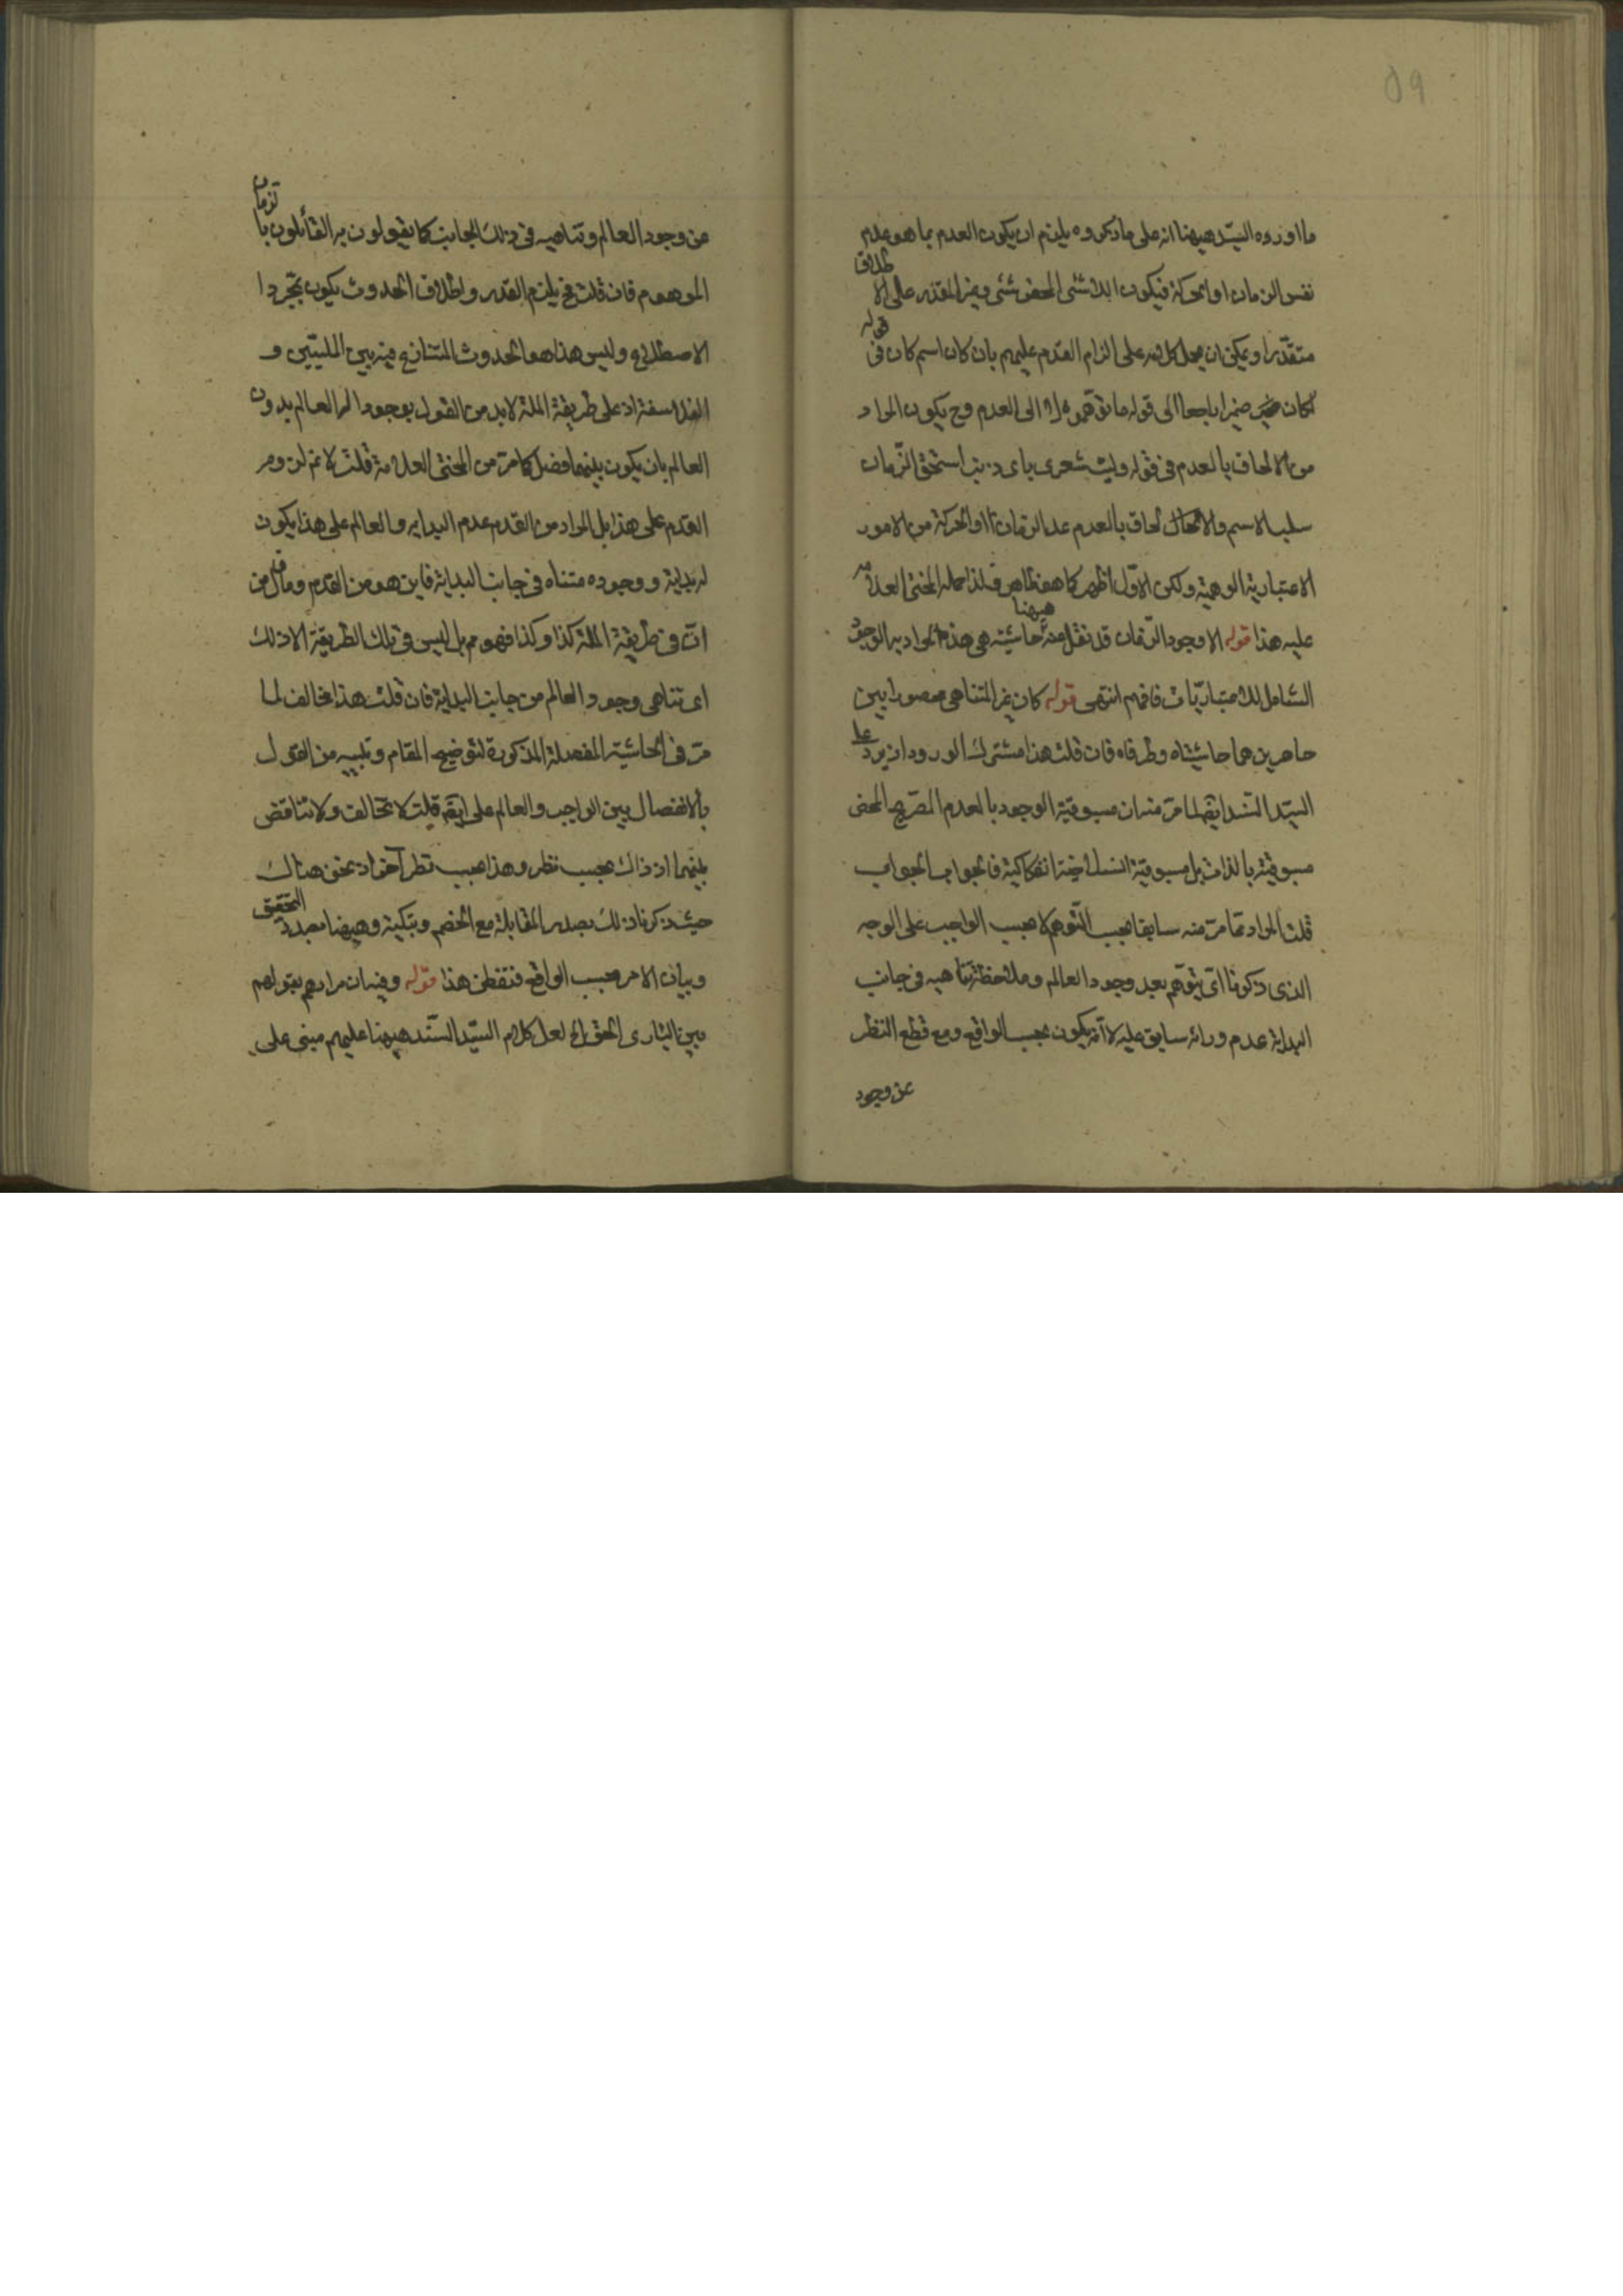 ٥٩
ما اورده السيّد هيهنا انه على ما ذكروه يلزم ان يكون العدم بما هو عدم
نفس الزمان او الحركة فيكون اللاشئى المحض شئى وغير المتقدر على الاطلاق
متقدّرا ويمكن ان يحمل كلامه على الزام القدم عليهم بان كان اسم كان فى قوله
لكان ضميرا راجعا الى قوله ما توهموه لا الى العدم وح يكون المراد
من الالحاق بالعدم فى قوله وليت شعرى باى ذنب استحق الزّمان
سلب الاسم والالحاق بالعدم عد الزمان او الحركة من الامور
الاعتبارية الوهمية ولكن الاوّل اظهر كما هو ظاهر فلذا حمله المحشى العلامه
عليه هذا قوله الا وجود الزمان قد نقل عنه هيهنا حاشيته هى هذه المراد به الوجود
الشامل للاعتباريّات فافهم انتهى قوله كان غير المتناهى محصورا بين
حاصرين هما حاشيتاه وطرفاه فان قلت هذا مشترك الورود اذ يرد على
السيّد السّند ايضا لما مرّ منه ان مسبوقيّة الوجود بالعدم الصّريح المحض
مسبوقيته بالذات بل مسبوقية انسلاخية انفكاكية فالجواب الجواب
قلت المراد ممّا مرّ منه سابقا بحسب التّوهم لا بحسب الواجب على الوجه
الذى ذكرنا اى يتوهّم بعد وجود العالم وملاحظة تناهيه فى جانب
البداية عدم ورائه سابق عليه لا انّه يكون بحسب الواقع ومع قطع النظر
عن وجود
عن وجود العالم وتناهيه فى ذلك الجانب كما يقولون به القائلون بالزمان
الموهوم فان قلت فح يلزم القدم واطلاق الحدوث يكون بمجّرد
الاصطلاح وليس هذا هو الحدوث المتنازع فيه بين المليّين و
الفلاسفة اذ على طريقة الملة لا بد من القول بوجود اله العالم بدون
العالم بان يكون بينهما فصل كما مرّ من المحشى العلامة قلت لا نم لزوم
القدم على هذا بل المراد من القدم عدم البدايه والعالم على هذا يكون
له بداية ووجوده متناه فى جانب البداية فاين هو من القدم وما قيل من
انّ فى طريقة الملة كذا وكذا فهو مم بل ليس فى تلك الطريقة الا ذلك
اى تناهى وجود العالم من جانب البداية فان قلت هذا مخالف لما
مرّ فى الحاشية المفصلة المذكورة لتوضيح المقام وتبيينه من القول
بالانفصال بين الواجب والعالم على قلت لا تخالف ولا تناقض
بينهما اذ ذاك بحسب نظر وهذا بحسب نظر آخر اذ نحن هناك
حيث ذكرنا ذلك بصدد المقابلة مع الخصم وتبكيته وهيهنا بصدد التحقيق
وبيان الامر بحسب الواقع فتفطن هذا قوله وفيه ان مرادهم بقولهم
بين البارى الحق الخ لعل كلام السيّد السّند هيهنا عليهم مبنى على